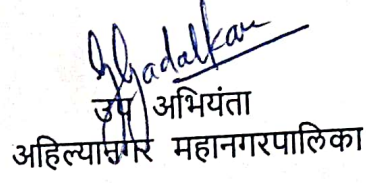 उप अभियंता
अहिल्यानगर महानगरपालिका